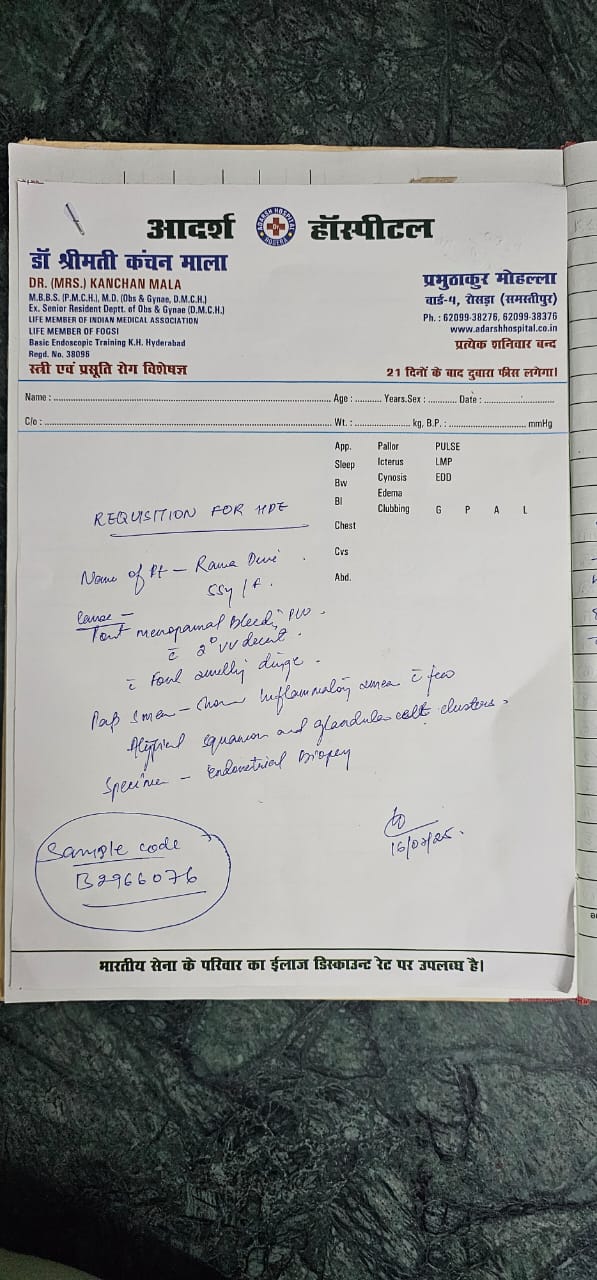 आदर्श हॉस्पीटल
ADARSH HOSPITAL
ROSERA
डॉ श्रीमती कंचन माला
DR. (MRS.) KANCHAN MALA
M.B.B.S. (P.M.C.H.), M.D. (Obs & Gynae, D.M.C.H.)
Ex. Senior Resident Deptt. of Obs & Gynae (D.M.C.H.)
LIFE MEMBER OF INDIAN MEDICAL ASSOCIATION
LIFE MEMBER OF FOGSI
Basic Endoscopic Training K.H. Hyderabad
Regd. No. 38096
स्त्री एवं प्रसूति रोग विशेषज्ञ
प्रमुठाकुर मोहल्ला
वार्ड-५, रोसड़ा (समस्तीपुर)
Ph. : 62099-38276, 62099-38376
www.adarshhospital.co.in
प्रत्येक शनिवार बन्द
21 दिनों के बाद दुबारा फीस लगेगा।
Name : Age : Years. Sex : Date :
C/o : Wt. : kg, B.P. : mmHg
App. Pallor PULSE
Sleep Icterus LMP
Bw Cynosis EDD
Bl Edema
Clubbing G P A L
Chest
Cvs
Abd.
REQUSITION FOR HPE
Name of Pt - Rama Devi
55y / F.
Post menopausal Bleeding P/V.
c̄ 2° UV decent.
c̄ Foul smelly
Pap Smear - Inflammatory smear c̄ few
Atypical squamous and glandular cell clusters.
Specimen - Endometrial Biopsy
Sample code
B2966076
16/07/25.
भारतीय सेना के परिवार का ईलाज डिस्काउन्ट रेट पर उपलब्ध है।